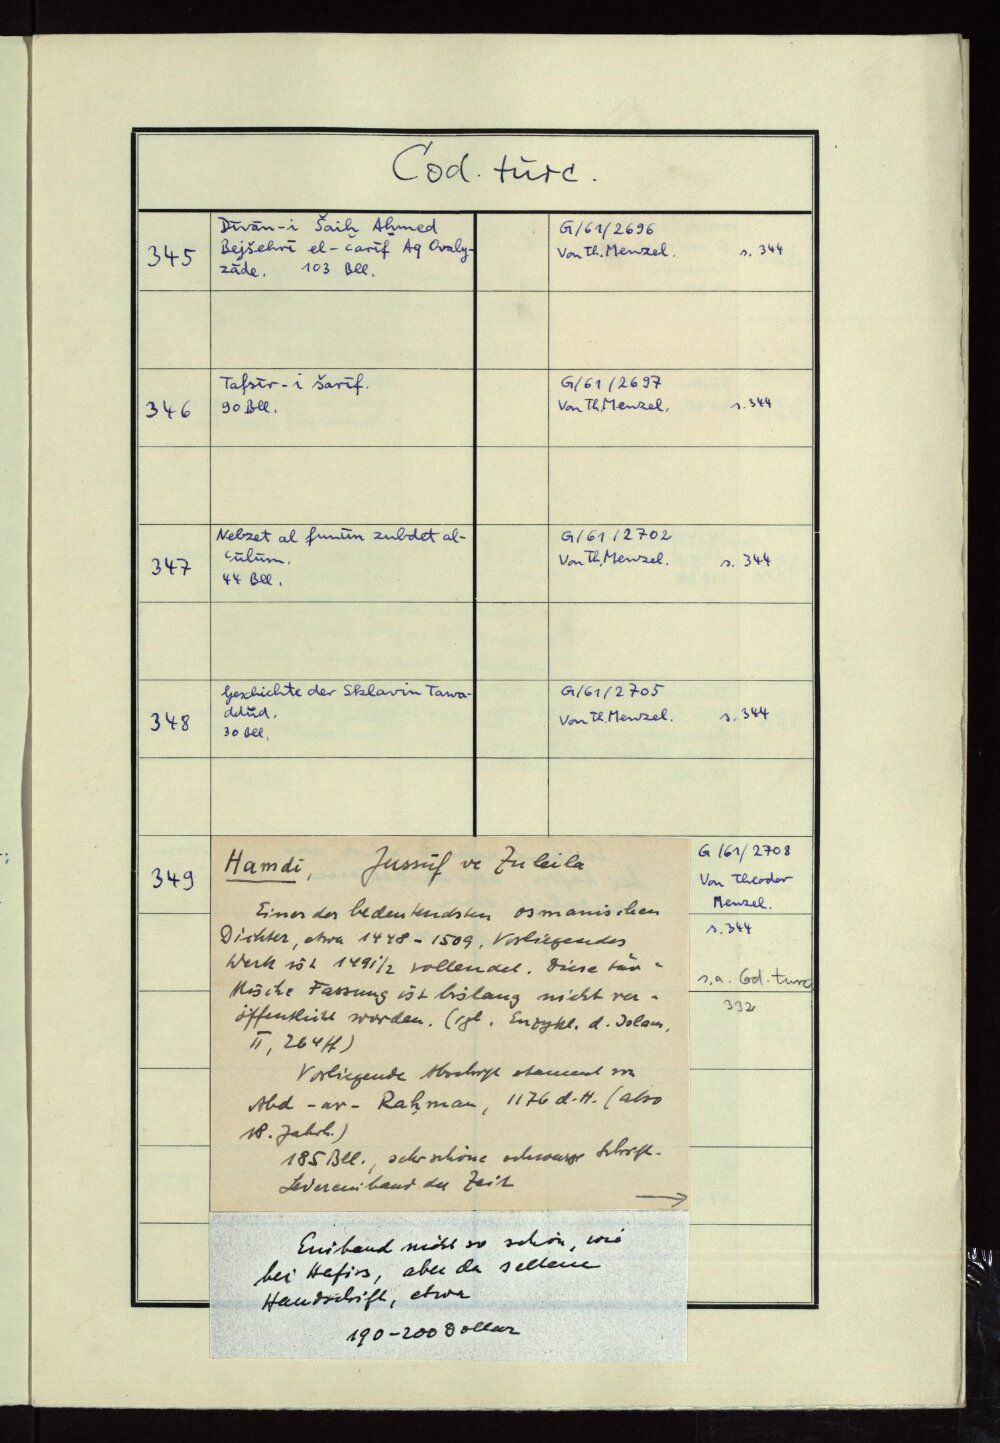 Cod. turc.
345
Dīvān-i Šaiḫ Aḥmed
Bejšehrī el-čarīf Aq Ovaly-
zāde. 103 Bll.
G/61/2696
Von Th. Menzel. s. 344
346
Tafsīr-i šarīf.
90 Bll.
G/61/2697
Von Th. Menzel. s. 344
347
Nebzet al funūn zubdet al-
ʿulūm.
44 Bll.
G/61/2702
Von Th. Menzel. s. 344
348
Geschichte der Sklavin Tawa-
ddūd.
30 Bll.
G/61/2705
Von Th. Menzel. s. 344
349
Hamdi, Jussūf ve Zuleila
Einer der bedeutendsten osmanischen
Dichter, etwa 1448-1509. Vorliegendes
Werk ist 1491/2 vollendet. Diese tür-
kische Fassung ist bislang nicht ver-
öffentlicht worden. (vgl. Enzykl. d. Islam,
II, 264ff)
Vorliegende Abschrift stammt von
Abd-ar-Raḥman, 1176 d.H. (also
18. Jahrh.)
185 Bll., sehr schöne schwarze Schrift.
Ledereinband der Zeit
Einband nicht so schön, wie
bei Hafiss, aber da seltene
Handschrift, etwa
190-200 Dollar
G/61/2708
Von Theodor
Menzel.
s. 344
s.a. Cod. turc
332